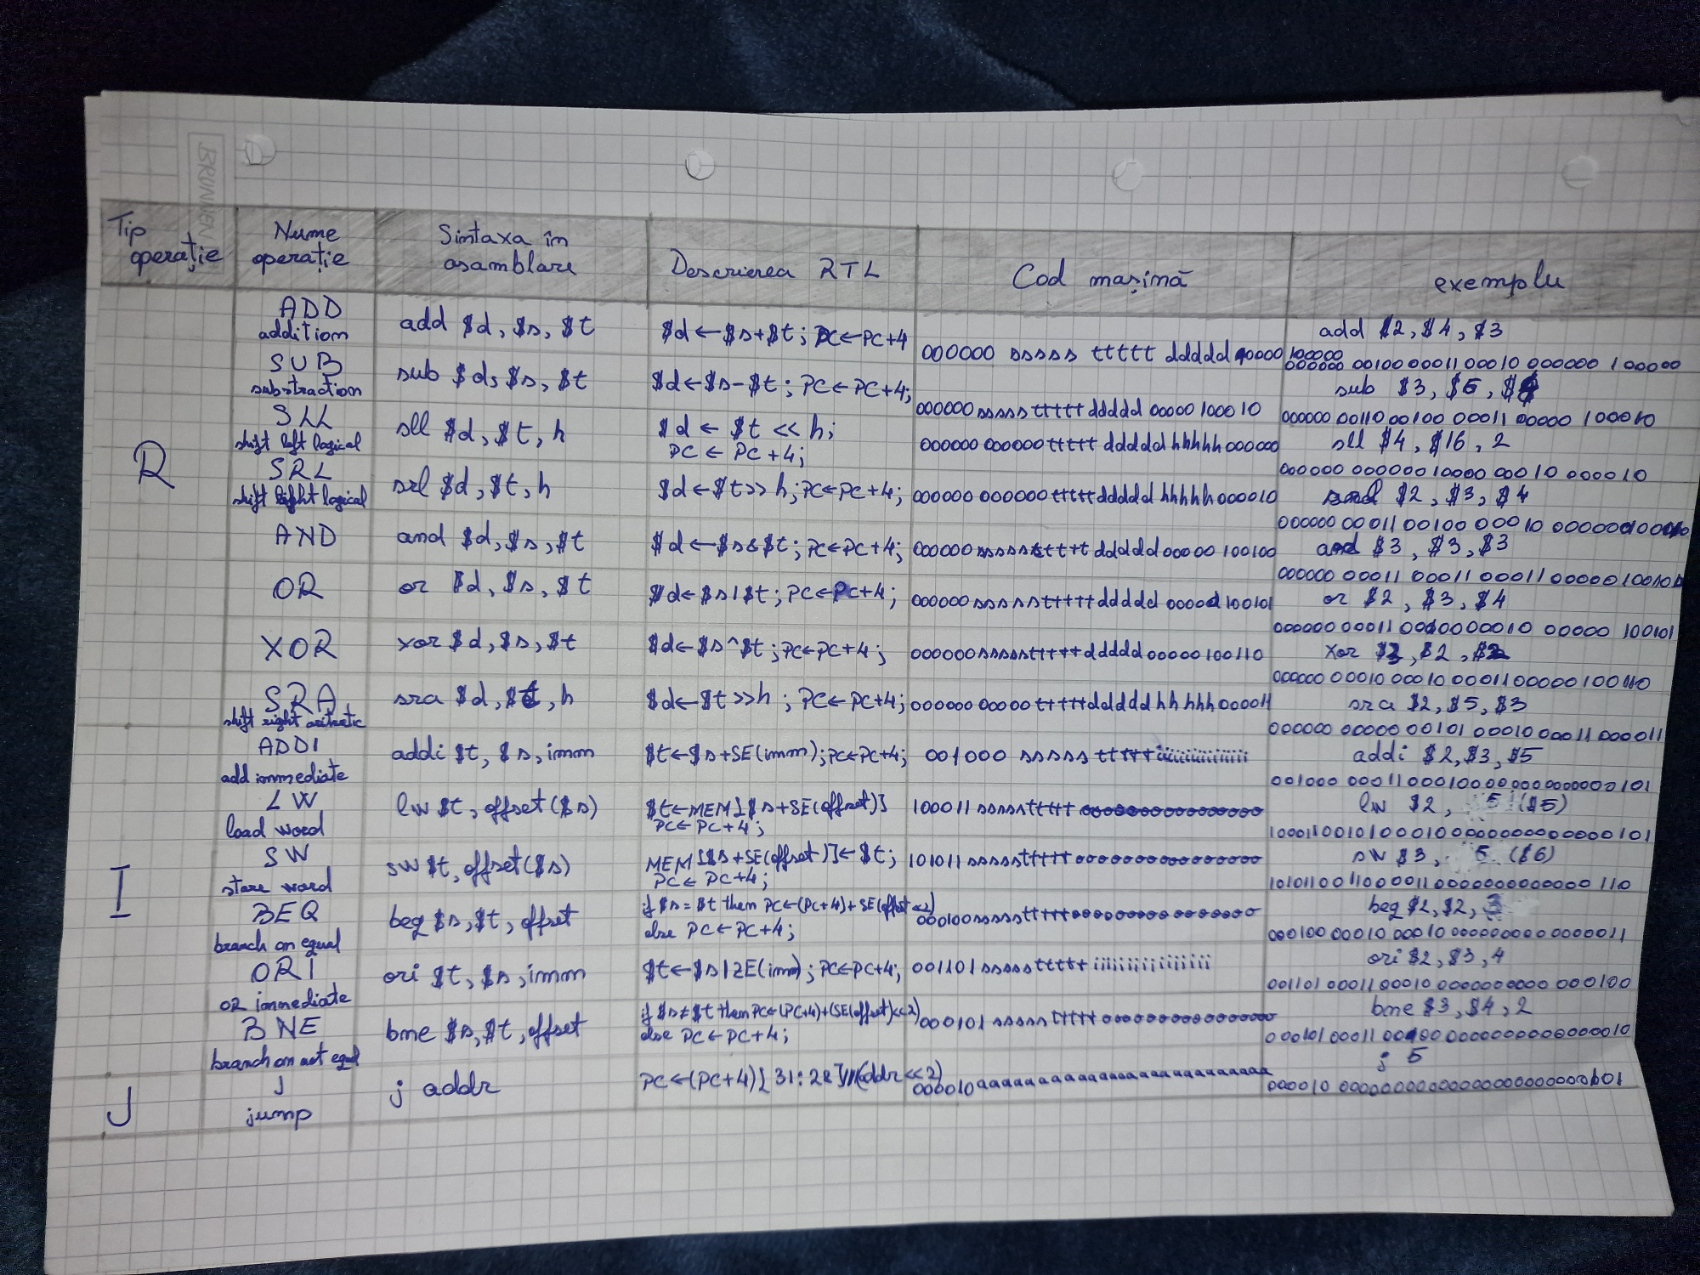 BRUNNEN
Tip operație
Nume operație
Sintaxa în asamblare
Descrierea RTL
Cod mașină
exemplu
R
ADD
addition
add $d, $s, $t
$d←$s+$t; PC←PC+4
000000 sssss ttttt ddddd 00000 100000
add $2, $4, $3
000000 00100 00011 00010 000000 100000
SUB
substraction
sub $d, $s, $t
$d←$s-$t; PC←PC+4;
000000 sssss ttttt ddddd 00000 100010
sub $3, $6,
000000 00110 00100 00011 00000 100010
SLL
shift left logical
sll $d, $t, h
$d ← $t << h;
PC ← PC+4;
000000 000000 ttttt ddddd hhhhh 000000
sll $4, $16, 2
000000 000000 10000 00010 000010
SRL
shift right logical
srl $d, $t, h
$d←$t>>h; PC←PC+4;
000000 000000 ttttt ddddd hhhhh 000010
$2, $3, $4
000000 00011 00100 00010
AND
and $d, $s, $t
$d←$s&$t; PC←PC+4;
000000 sssss ttttt ddddd 00000 100100
and $3, $3, $3
000000 00011 00011 00011 00000
OR
or $d, $s, $t
$d←$s|$t; PC←PC+4;
000000 sssss ttttt ddddd 00000 100101
or $2, $3, $4
000000 00011 00000 100101
XOR
xor $d, $s, $t
$d←$s^$t; PC←PC+4;
000000 sssss ttttt ddddd 00000 100110
xor , $2,
000000 00010 00010 00011 00000
SRA
shift right aritmetic
sra $d, $t, h
$d←$t>>h; PC←PC+4;
000000 00000 ttttt ddddd hhhhh 000011
sra $2, $5, $3
000000 00000 00101 00010 00011 000011
I
ADDI
add immediate
addi $t, $s, imm
$t←$s+SE(imm); PC←PC+4;
001000 sssss ttttt iiiiiiiiiiiiiiii
addi $2, $3, $5
LW
load word
lw $t, offset($s)
$t←MEM[$s+SE(offset)]
PC←PC+4;
100011 sssss ttttt oooooooooooooooo
lw $2, 5 ($5)
SW
store word
sw $t, offset($s)
MEM[$s+SE(offset)]←$t;
PC←PC+4;
101011 sssss ttttt oooooooooooooooo
sw $3, 5 ($6)
BEQ
branch on equal
beq $s, $t, offset
if $s=$t then PC←(PC+4)+SE(offset<<2)
else PC←PC+4;
000100 sssss ttttt oooooooooooooooo
beq $2, $2, 3
ORI
or immediate
ori $t, $s, imm
$t←$s|ZE(imm); PC←PC+4;
001101 sssss ttttt iiiiiiiiiiiiiiii
ori $2, $3, 4
BNE
branch on not equal
bne $s, $t, offset
if $s≠$t then PC←(PC+4)+(SE(offset)<<2)
else PC←PC+4;
000101 sssss ttttt oooooooooooooooo
bne $3, $4, 2
J
J
jump
j addr
PC←(PC+4)[31:28]||(addr<<2)
000010 aaaaaaaaaaaaaaaaaaaaaaaaaa
j 5